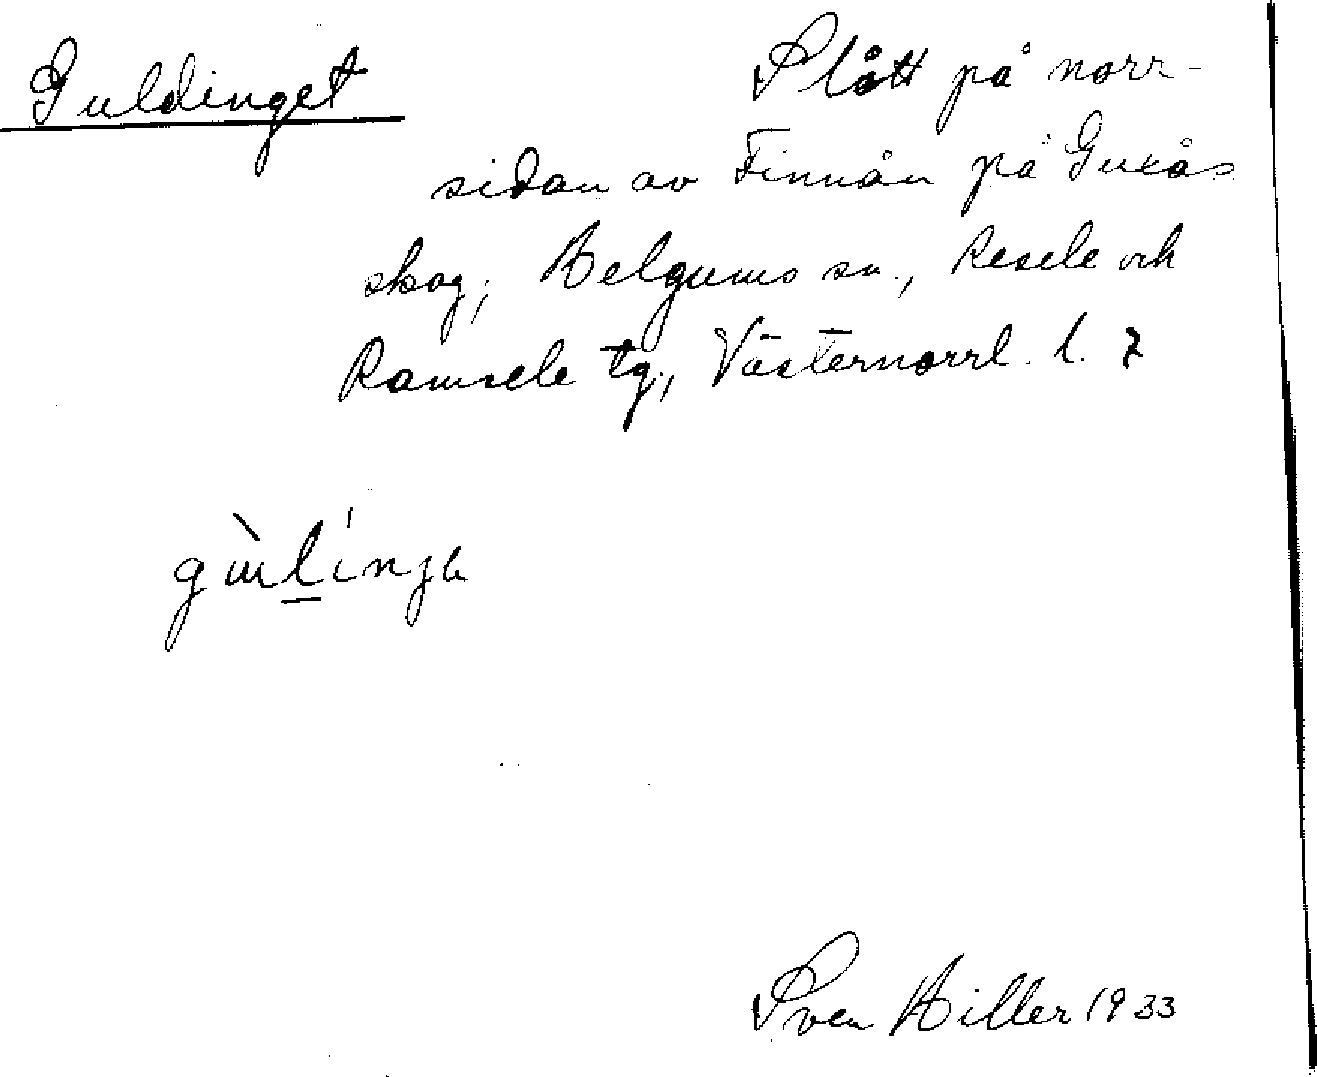 Guldinget
Slått på norr-
sidan av Finnån på Guxås
skog, Helgums sn., Resele och
Ramsele tg., Västernorrl. l. Z
Sven Hiller 1933